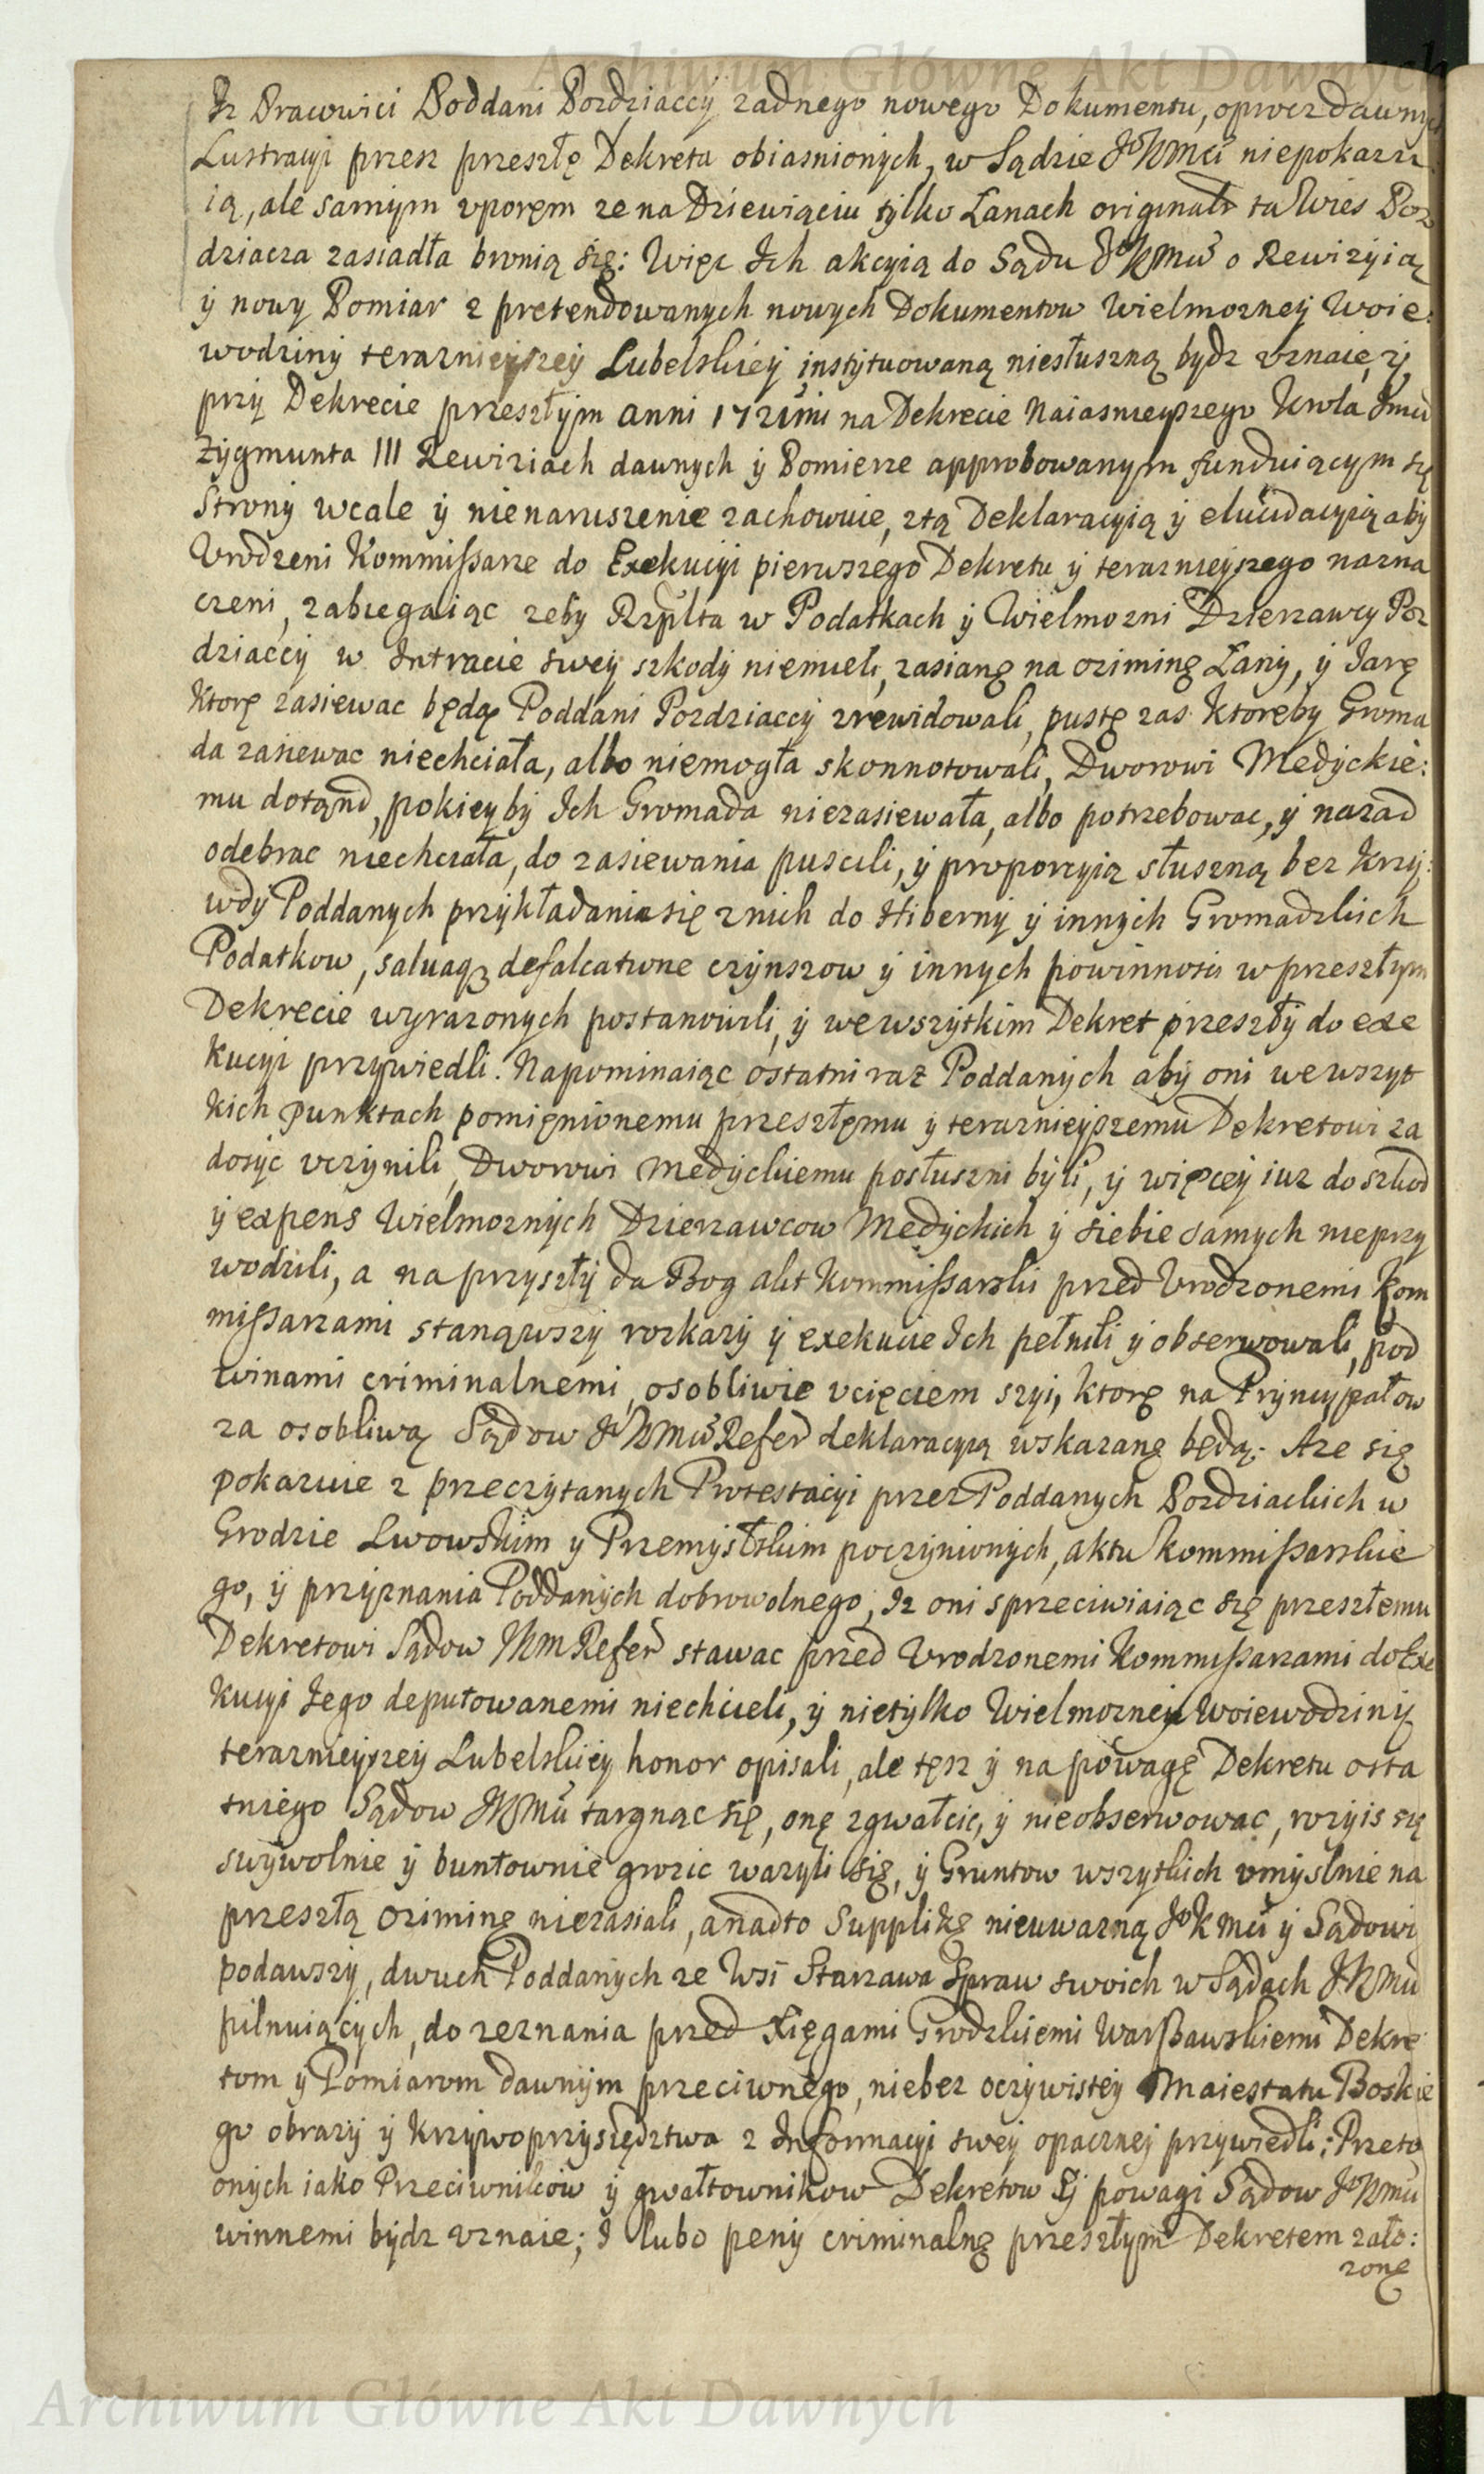 Archiwum Główne Akt Dawnych
Iz Pracowici Poddani Pozdziaccy zadnego nowego Dokumentu, oprocz dawnych
Lustracyi przez przeszłę Dekreta obiasnionych, w Sądzie JoKMci niepokazu
ią, ale samym vporem ze na Dziewiąciu tylko Łanach ta Wies Poz
dziacza zasiadła bronią się: Więc Ich akcyią do Sądu JoKMci o Rewizyią
ÿ nowy Pomiar z pretendowanych nowych Dokumentow Wielmozneÿ Woie:
wodziny terazniejszeÿ Lubelskieÿ instytuowaną niesłuszną bydz vznaie, ÿ
przy Dekrecie przeszłym anni 1721mi na Dekrecie Naiasnieyszego Krola Jmci
Zygmunta III Rewiziach dawnych ÿ Pomierze approbowanym funduiącym się
Strony wcale ÿ nienaruszenie zachowuie, ztą Deklaracyią ÿ elucidacyią aby
Vrodzeni Kommißarze do Exekucyi pierwszego Dekretu ÿ terazniejszego nazna
czeni, zabiegaiąc zeby Rzplta w Podatkach ÿ Wielmozni Dzierzawcy Poz
dziaccy w Intracie sweÿ szkody niemieli, zasianę na oziminę Łany, ÿ Jarę
ktorę zasiewac będą Poddani Pozdziaccy zrewidowali, pustę zas ktoreby Groma
da zasiewac niechciała, albo niemogła skonnotowali, Dworowi Medyckie:
mu dotąnd, pokieÿby Ich Gromada niezasiewała, albo potrzebowac, ÿ nazad
odebrac niechciała, do zasiewania puscili, ÿ proporcyią słuszną bez krzy:
wdy Poddanych przykładania się z nich do Hiberny ÿ innych Gromadzkich
Podatkow, salvaq3 defalcatione czynszow ÿ innych powinnosci w przeszłym
Dekrecie wyrazonych postanowili, ÿ we wszytkim Dekret przeszły do exe
kucyi przywiedli. Napominaiąc ostatni raz Poddanych aby oni we wszyt
kich punktach pomienionemu przeszłemu ÿ terazniejszemu Dekretowi za
dosyc vczynili, Dworowi Medyckiemu posłuszni byli, ÿ więcey iuz do szkod
ÿ expens Wielmoznych Dzierzawcow Medyckich ÿ siebie samych nieprzy
wodzili, a na przyszły da Bog akt Kommißarski przed Vrodzonemi Kom
mißarzami stanąwszy rozkazy ÿ exekucie Ich pełnili ÿ obserwowali, pod
winami criminalnemi, osobliwie vcięciem szyi, ktorę na Pryncypałow
za osobliwą Sądow JoKMci Refer deklaracyią wskazanę będą. Aze się
pokazuie z przeczytanych Protestacyi przez Poddanych Pozdziackich w
Grodzie Lwowskim ÿ Przemysłskim poczynionych, aktu Kommißarskie
go, ÿ przyznania Poddanych dobrowolnego, Iz oni sprzeciwiaiąc się przeszłemu
Dekretowi Sądow JKM Refer stawac przed Vrodzonemi Kommißarzami do Exe
kucyi Jego deputowanemi niechcieli, ÿ nietylko Wielmozneÿ Woiewodziny
terazniejszeÿ Lubelskieÿ honor opisali, ale tesz ÿ na powagę Dekretu osta
tniego Sądow JKMci targnąc się, onę zgwałcic, ÿ nieobserwowac, rozyis się
swywolnie ÿ buntownie grozic wazyli się, ÿ Gruntow wszytkich vmyslnie na
przeszłą oziminę niezasiali, anadto Supplikę nieuwazną JoKMci ÿ Sądowi
podawszy, dwuch Poddanych ze Wsi Starzawa Spraw swoich w Sądach JKMci
pilnuiących, do zeznania przed Xięgami Grodzkiemi Warßawskiemi Dekre
tom ÿ Pomiarom dawnym przeciwnego, niebez oczywisteÿ Maiestatu Boskie
go obrazy ÿ krzywoprzysięstwa z Informacyi sweÿ opaczneÿ przywiedli; Przeto
onych iako Przeciwnikow ÿ gwałtownikow Dekretow ÿ powagi Sądow JoKMci
winnemi bydz vznaie; I lubo peny criminalnę przeszłym Dekretem zało:
zonę
Archiwum Główne Akt Dawnych